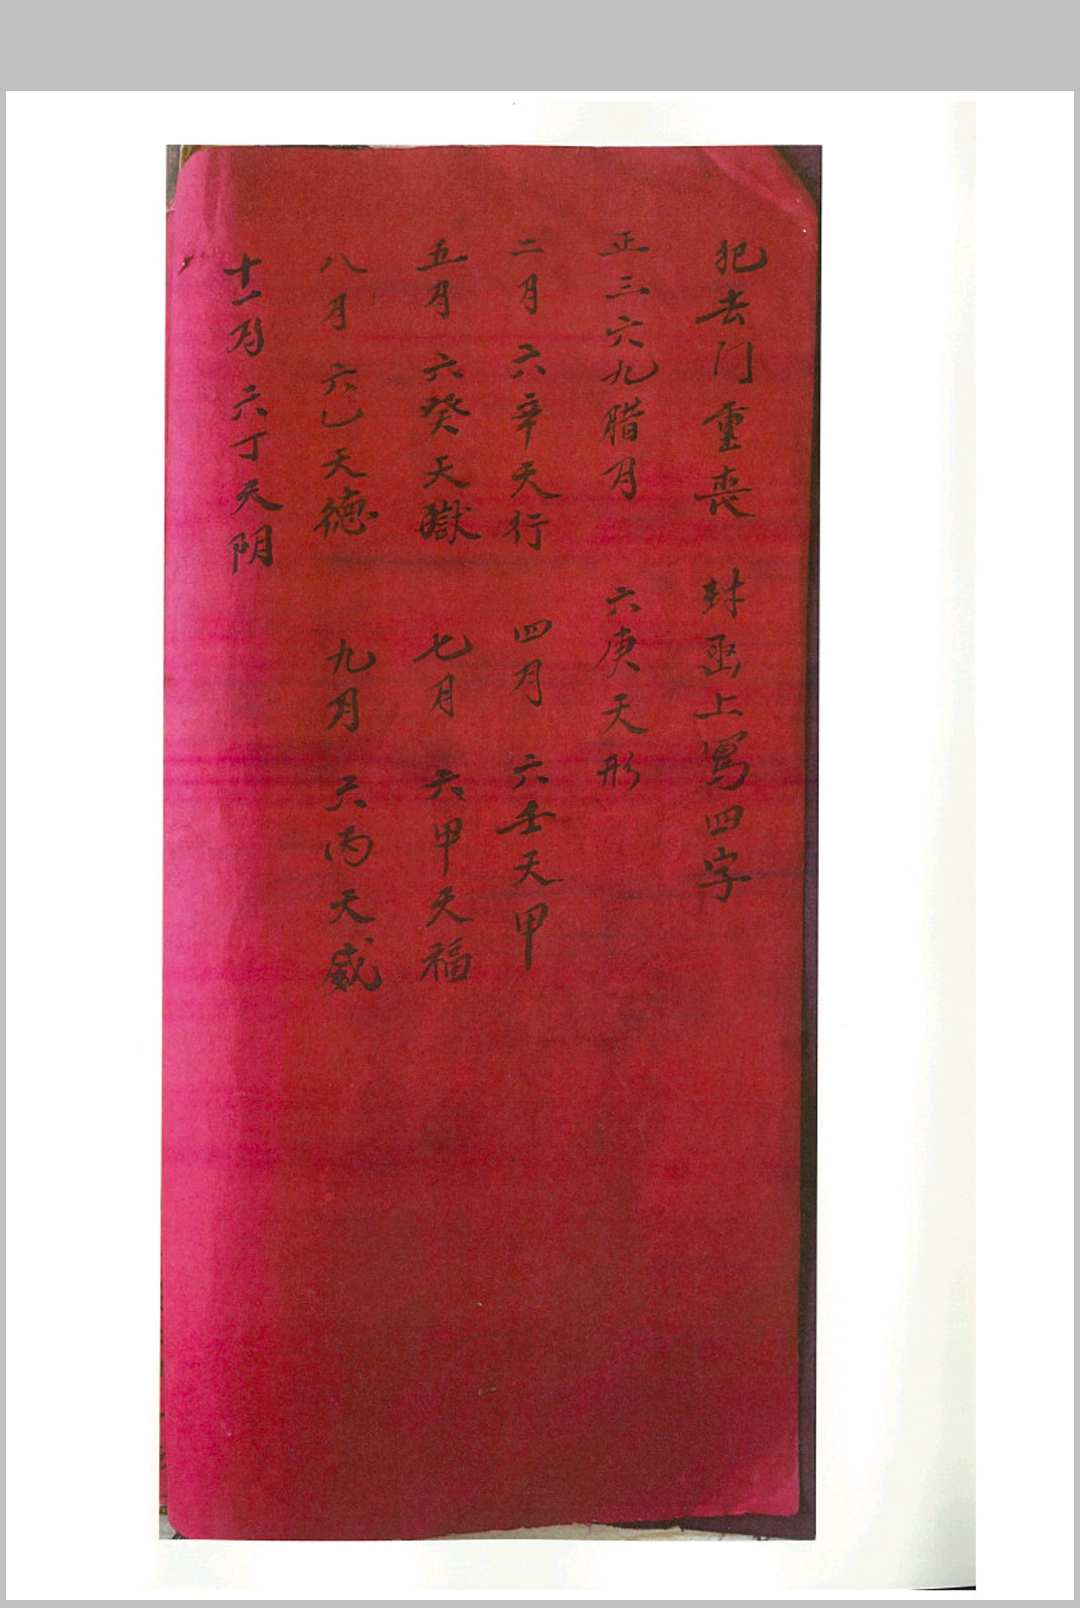 犯去门重丧 封函上写四字
正三六九腊月 六庚天形
二月 六辛天行 四月 六壬天甲
五月 六癸天獄 七月 六甲天福
八月 六乙天德 九月 六丙天威
十一月 六丁天阴